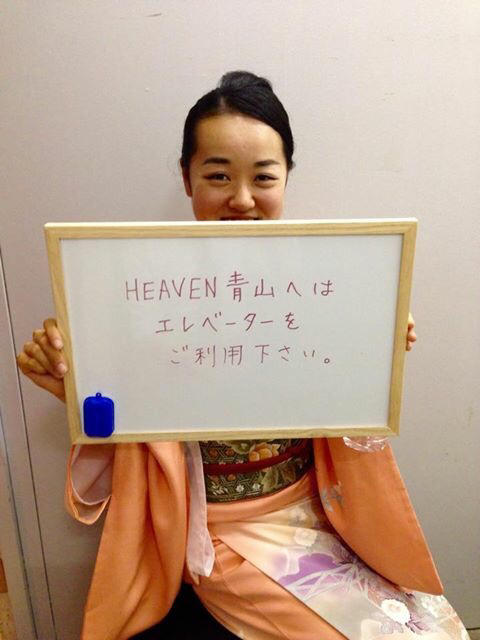 HEAVEN青山へは
エレベーターを
ご利用下さい。